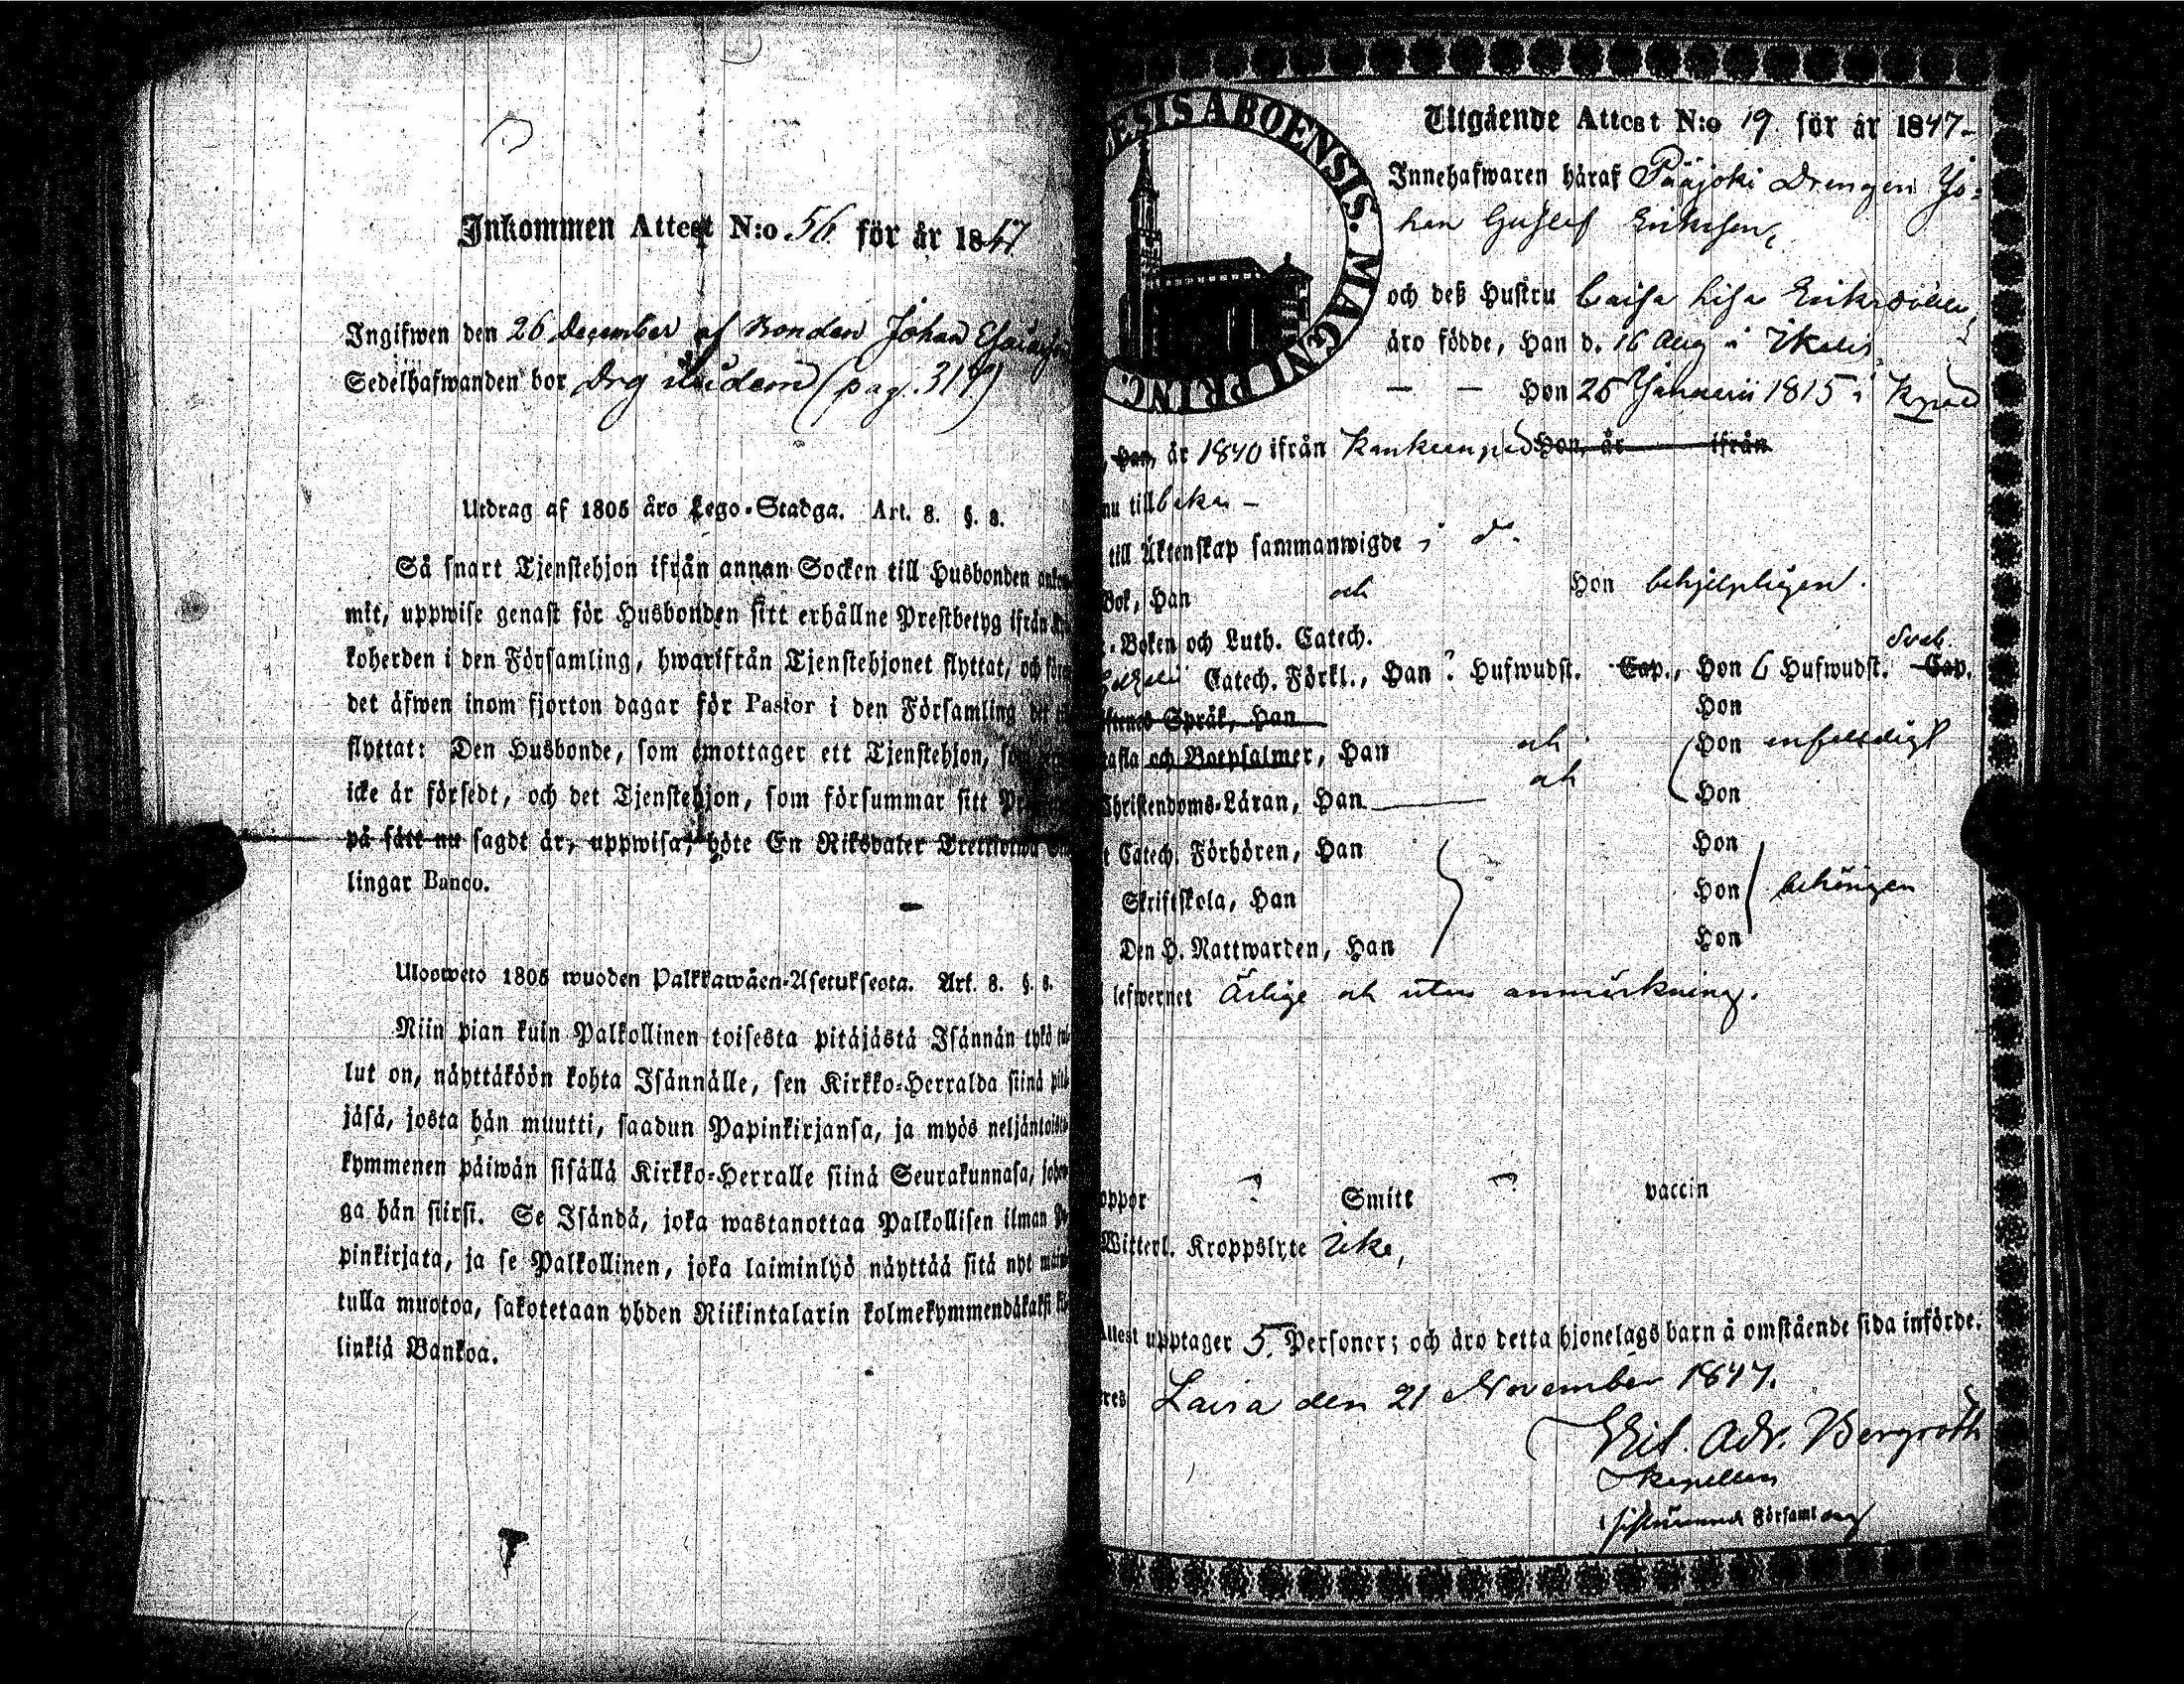 Inkommen Attest N:o 56. för år 1847.
Ingifwen den 26 December af Bonden Johan
Sedelhafwanden bor Drg (pag. 317)
Utdrag af 1805 års Lego-Stadga. Art. 8. §. 8.
Så snart Tjenstehjon ifrån annan Socken till Husbonden
mit, uppwise genast för Husbonden sitt erhållne Prestbetyg ifrån
koherden i den Församling, hwarifrån Tjenstehjonet flyttat, och
det äfwen inom fjorton dagar för Pastor i den Församling
flyttat: Den Husbonde, som emottager ett Tjenstehjon,
icke är försedt, och det Tjenstehjon, som försummar sitt
på sätt nu sagdt är, uppwisa, böte En Riksdaler Trettiotwå
lingar Banco.
Ulosweto 1805 wuoden Palkkawäen-Asetuksesta. Art. 8. §. 8.
Niin pian kuin Palkollinen toisesta pitäjästä Isännän tykö
lut on, näyttäköön kohta Isännälle, sen Kirkko-Herralda siinä
jäsä, josta hän muutti, saadun Papinkirjansa, ja myös neljäntoista
kymmenen päiwän sisällä Kirkko-Herralle siinä Seurakunnasa,
ga hän siirsi. Se Isändä, joka wastanottaa Palkollisen ilman
pinkirjata, ja se Palkollinen, joka laiminlyö näyttää sitä nyt
tulla muotoa, sakotetaan yhden Riikintalarin kolmekymmendäkaksi
linkiä Bankoa.
ESIS ABOENSIS. MAGNI PRINC.
Utgående Attest N:o 19 för år 1847-
Innehafwaren häraf Pääjoki Drengen Jo=
han Gustaf Eriksson,
och deß Hustru Caisa Lisa Eriksdotter,
äro födde, Han d. 16 Aug i Ikalis,
— — Hon 25 Januarii 1815 i
Han, år 1840 ifrån Hon, år ifrån
nu tillbaka -
till Äktenskap sammanwigde
Bok, Han och Hon behjelpligen.
-Boken och Luth. Catech.
Catech. Förkl., Han ? Hufwudst. Cap., Hon 6 Hufwudst. Sveb. Cap.
Språk, Han Hon
tafla och Botpsalmer, Han och Hon enfaldigt
Christendoms-Läran, Han och Hon
Catech. Förhören, Han Hon
Skriftskola, Han Hon behörigen
Den H. Nattwarden, Han Hon
lefwernet Ärlige och utan anmärkning.
oppor ? Smitt ? vaccin
Witterl. Kroppslyte Icke,
Attest upptager 5. Personer; och äro detta hjonelags barn å omstående sida införde.
Lavia den 21 November 1847.
Adr. Bergroth
Kapellan
i Församling